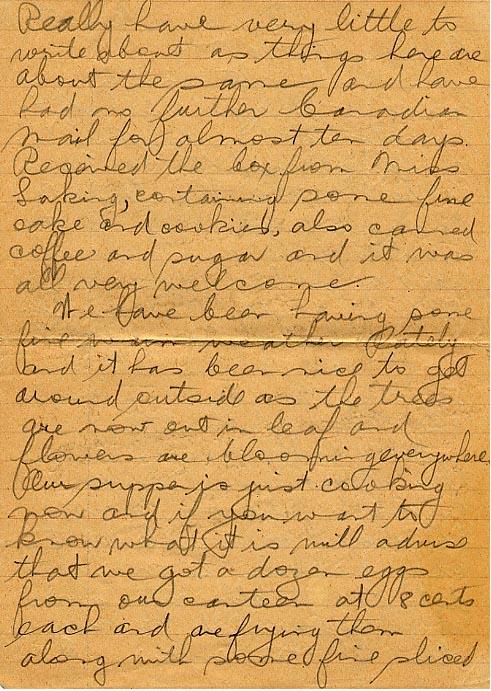 Really have very little to
write about as things here are
about the same and have
had no further Canadian
mail for almost ten days.
Received the box from Miss
Laking, containing some fine
cake and cookies, also canned
coffee and sugar and it was
all very welcome.
We have been having some
fine warm weather lately
and it has been nice to get
around outside as the trees
are now out in leaf and
flowers are blooming everywhere.
Our supper is just cooking
now and if you want to
know what it is will advise
that we got a dozen eggs
from our canteen at 8 cents
each and are frying them
along with some fine sliced